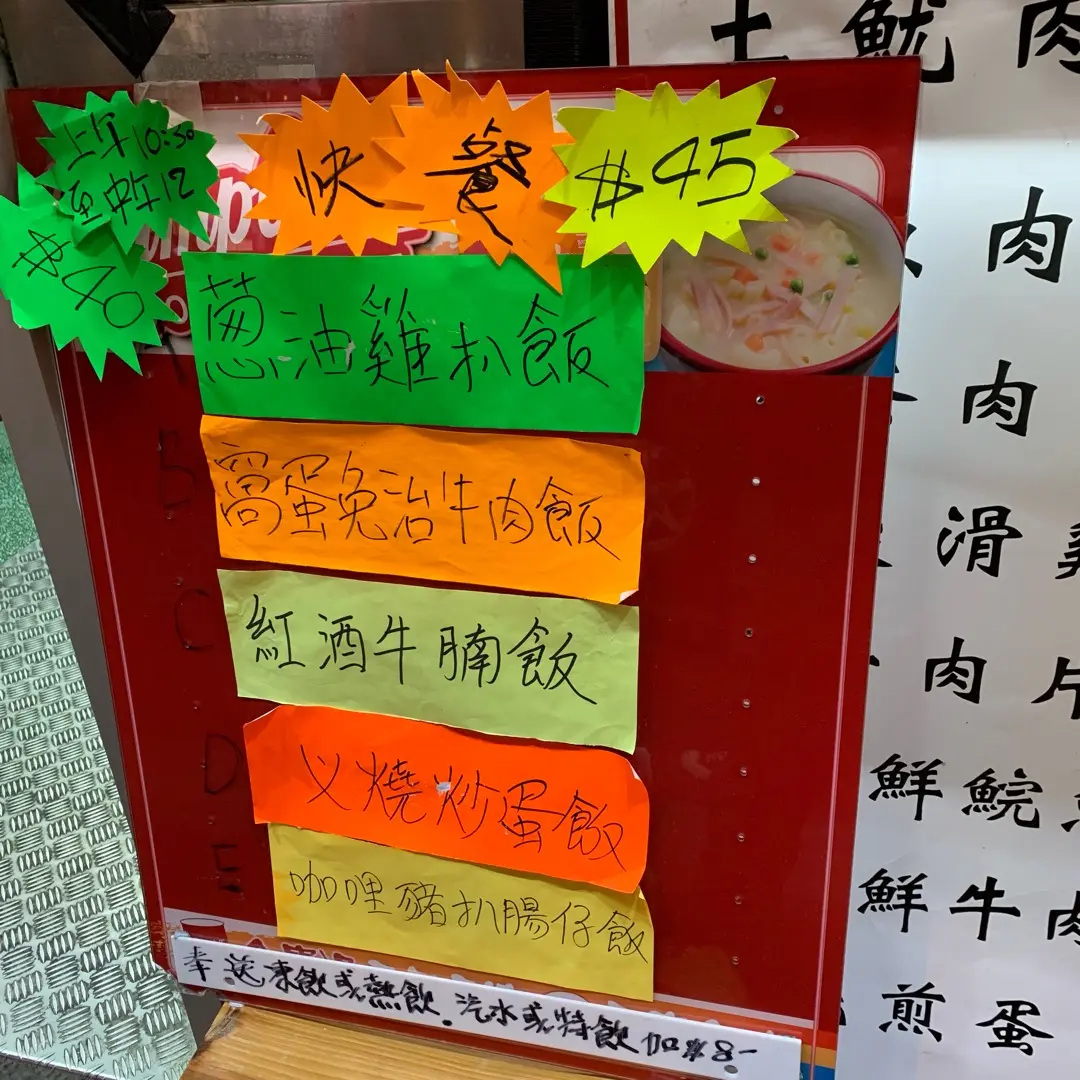 上午10:30
至中午12
$40
快餐
$45
葱油雞扒飯
窩蛋免治牛肉飯
紅酒牛腩飯
叉燒炒蛋飯
咖哩豬扒腸仔飯
B
C
D
E
送凍飲或熱飲。汽水或特飲加$8-
土魷肉
肉
肉
滑雞
肉片
鮮鯇
鮮牛肉
煎蛋